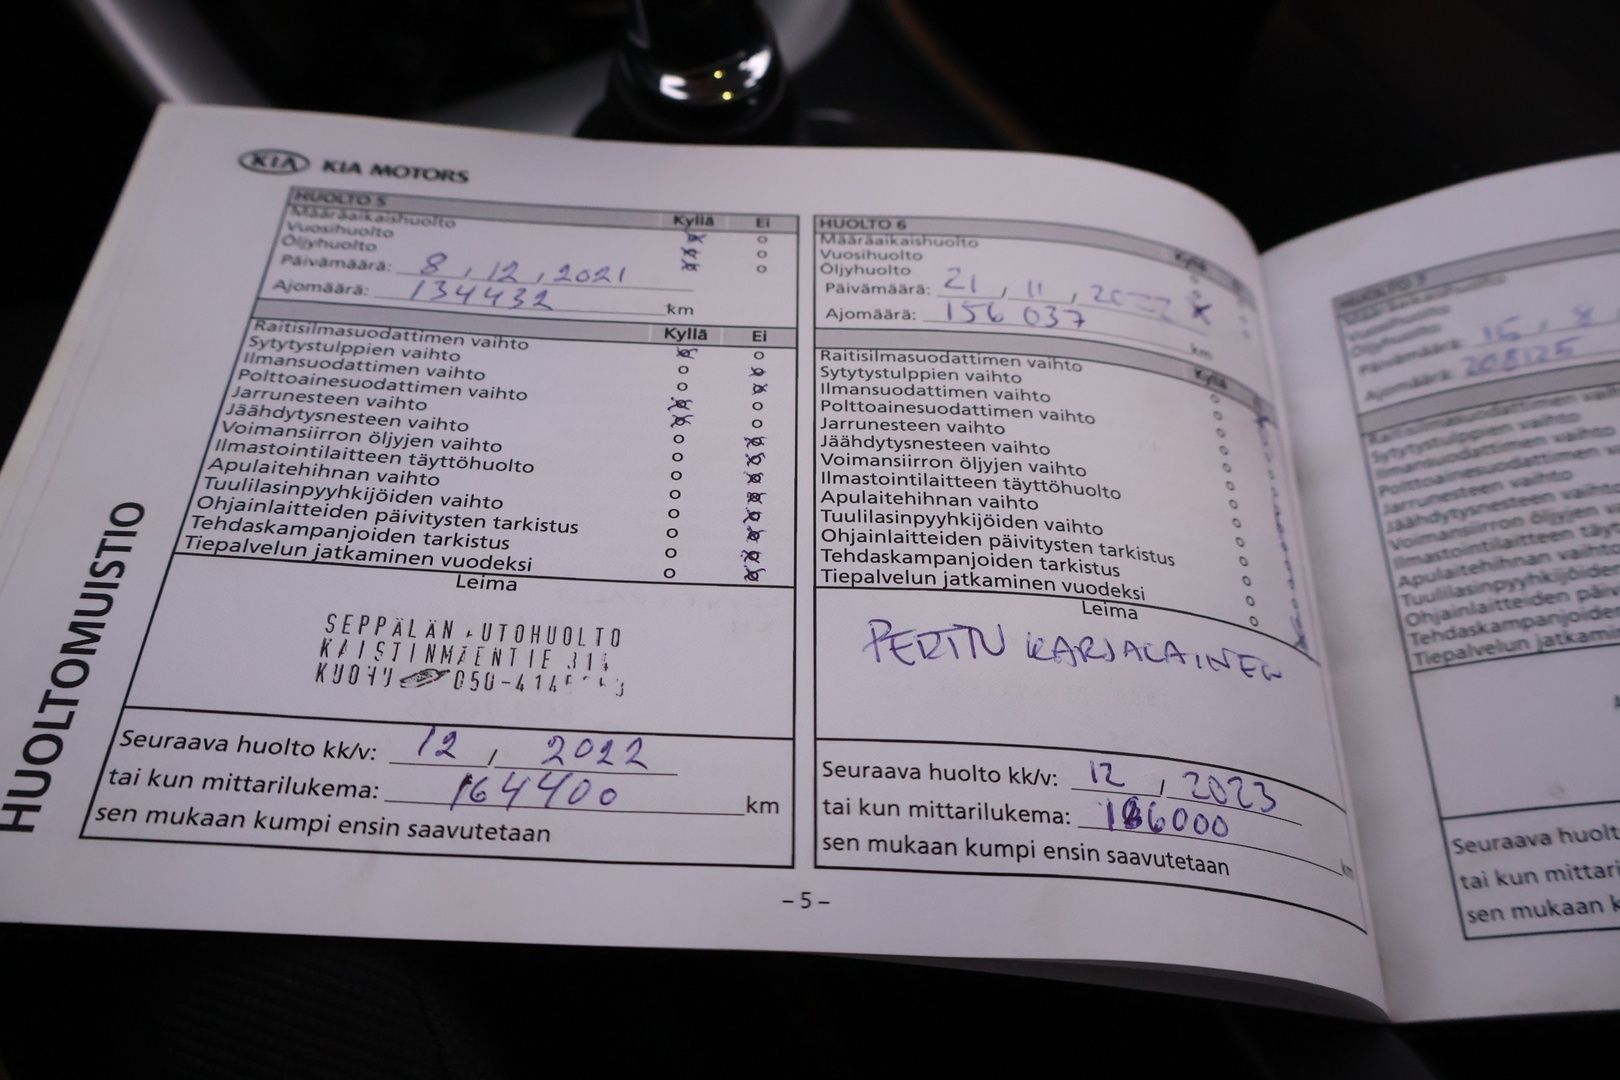 KIA KIA MOTORS
HUOLTOMUISTIO
HUOLTO 5
Määräaikaishuolto Kyllä Ei
Vuosihuolto
Öljyhuolto
Päivämäärä: 8, 12, 2021
Ajomäärä: 134432 km
Raitisilmasuodattimen vaihto Kyllä Ei
Sytytystulppien vaihto
Ilmansuodattimen vaihto
Polttoainesuodattimen vaihto
Jarrunesteen vaihto
Jäähdytysnesteen vaihto
Voimansiirron öljyjen vaihto
Ilmastointilaitteen täyttöhuolto
Apulaitehihnan vaihto
Tuulilasinpyyhkijöiden vaihto
Ohjainlaitteiden päivitysten tarkistus
Tehdaskampanjoiden tarkistus
Tiepalvelun jatkaminen vuodeksi
Leima
SEPPÄLÄN UTOHUOLTO
KAISTINMÄENTIE 314
050-414
Seuraava huolto kk/v: 12, 2022
tai kun mittarilukema: 164400 km
sen mukaan kumpi ensin saavutetaan
HUOLTO 6
Määräaikaishuolto Kyllä
Vuosihuolto
Öljyhuolto
Päivämäärä: 21, 11, 2022
Ajomäärä: 156 037 km
Raitisilmasuodattimen vaihto Kyllä
Sytytystulppien vaihto
Ilmansuodattimen vaihto
Polttoainesuodattimen vaihto
Jarrunesteen vaihto
Jäähdytysnesteen vaihto
Voimansiirron öljyjen vaihto
Ilmastointilaitteen täyttöhuolto
Apulaitehihnan vaihto
Tuulilasinpyyhkijöiden vaihto
Ohjainlaitteiden päivitysten tarkistus
Tehdaskampanjoiden tarkistus
Tiepalvelun jatkaminen vuodeksi
Leima
PERTTU KARJALAINEN
Seuraava huolto kk/v: 12, 2023
tai kun mittarilukema: 186000 km
sen mukaan kumpi ensin saavutetaan
– 5 –
HUOLTO 7
Määräaikaishuolto
Vuosihuolto
Öljyhuolto
Päivämäärä: 15, 8,
Ajomäärä: 208125
Raitisilmasuodattimen
Sytytystulppien vaihto
Ilmansuodattimen vaihto
Polttoainesuodattimen
Jarrunesteen vaihto
Jäähdytysnesteen vaihto
Voimansiirron öljyjen
Ilmastointilaitteen
Apulaitehihnan vaihto
Tuulilasinpyyhkijöiden
Ohjainlaitteiden
Tehdaskampanjoiden
Tiepalvelun jatkamin
Seuraava huolt
tai kun mittari
sen mukaan k